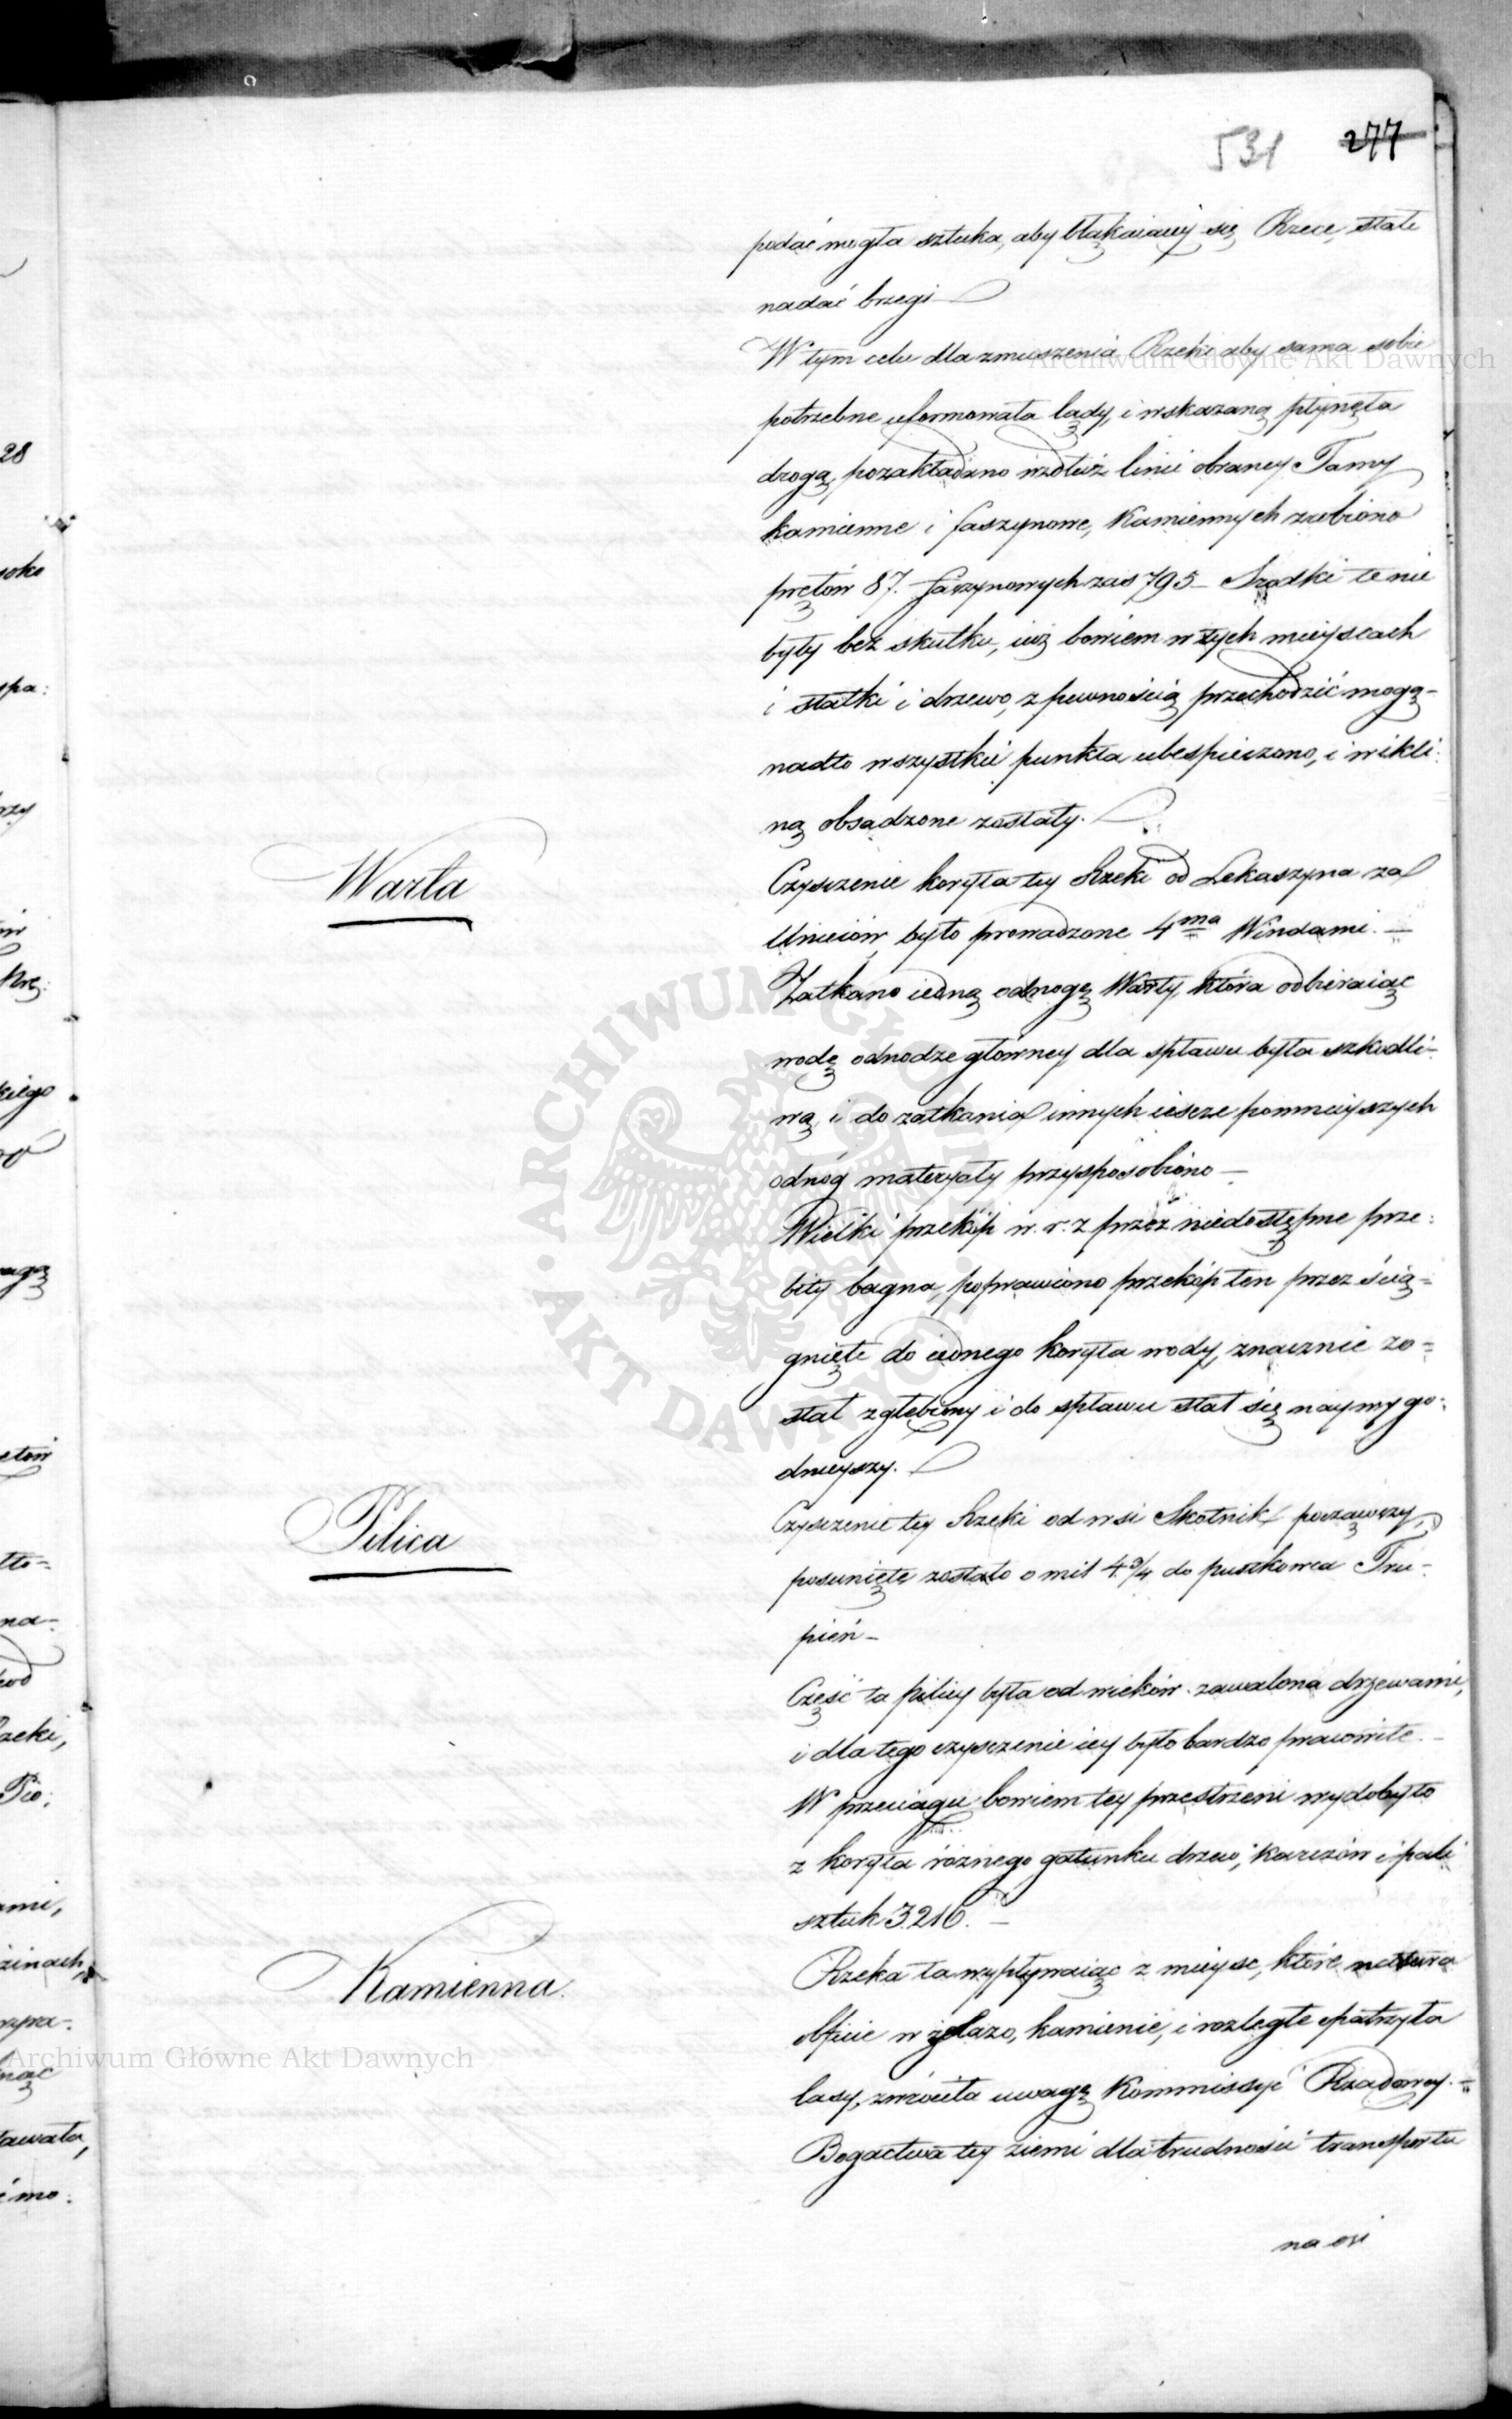 531 277
podać mogła sztuka, aby błąkaiącey się Rzece, stałe
nadać brzegi
W tym celu dla zmuszenia Rzeki aby sama sobie
potrzebne uformowała lądy, i wskazaną płynęła
drogą, pozakładano wzdłuż linii obraney Tamy
kamienne i faszynowe, Kamiennych zrobiono
prętów 87. faszynowych zaś 795 – Srodki te nie
były bez skutku, iuż bowiem w tych mieyscach
i statki i drzewo, z pewnością przechodzić mogą –
nadto wszystkie punkta ubespieczono, i wikli:
ną obsadzone zostały.
Warta
Czyszczenie koryta tey Rzeki od Lekaszyna za
Uniejów, było prowadzone 4ma Windami. –
Zatkano iedną odnogę Warty, która odbieraiąc
wodę odnodze głowney dla spławu była szkodli-
wą, i do zatkania innych iescze pomnieyszych
odnóg materyały przysposobiono –
Wielki przekóp w. r. z przez niedostępne prze:
bity bagna, poprawiono przekóp ten przez ścią=
gnięte do iednego koryta wody, znacznie zo=
stał zgłębiony i do spławu stał się naywygo:
dnieyszy.
Pilica
Czyszczenie tey Rzeki od wsi Skotnik począwszy,
posunięte zostało o mil 4 3/4 do pustkowia Tru-
pień –
Część ta pilicy była od wieków zawalona drzewami,
i dla tego czyszczenie iey było bardzo pracowite. –
W przeciągu bowiem tey przestrzeni wydobyto
z koryta różnego gatunku drzew, karczów i pali
sztuk 3216. –
Kamienna.
Rzeka ta wypływaiąc z mieysc, które natura
obficie w żelazo, kamienie, i rozległe opatrzyła
lasy, zwróciła uwagę Kommissyi Rządowey. =
Bogactwa tey ziemi dla trudności transportu
na osi